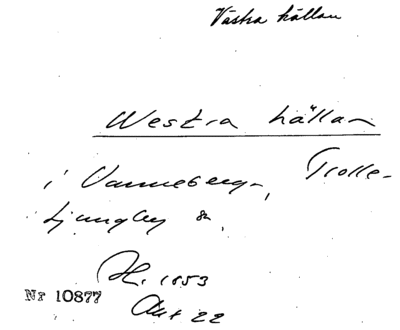 Västra källan
Westra källan
i Vanneberga, Trolle-
Ljungby sn,
H. 1853
Akt 22
Nr 10877